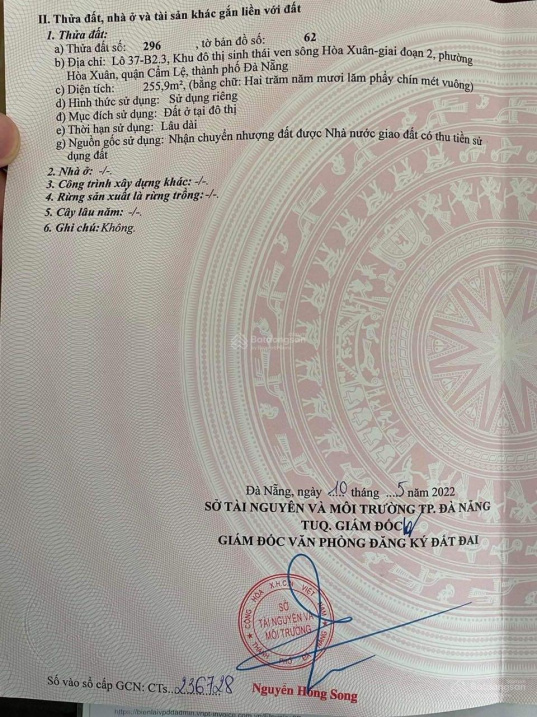 II. Thửa đất, nhà ở và tài sản khác gắn liền với đất
1. Thửa đất:
a) Thửa đất số: 296 , tờ bản đồ số: 62
b) Địa chỉ: Lô 37-B2.3, Khu đô thị sinh thái ven sông Hòa Xuân-giai đoạn 2, phường
Hòa Xuân, quận Cẩm Lệ, thành phố Đà Nẵng
c) Diện tích: 255,9m², (bằng chữ: Hai trăm năm mươi lăm phẩy chín mét vuông)
d) Hình thức sử dụng: Sử dụng riêng
đ) Mục đích sử dụng: Đất ở tại đô thị
e) Thời hạn sử dụng: Lâu dài
g) Nguồn gốc sử dụng: Nhận chuyển nhượng đất được Nhà nước giao đất có thu tiền sử
dụng đất
2. Nhà ở: -/-.
3. Công trình xây dựng khác: -/-.
4. Rừng sản xuất là rừng trồng: -/-.
5. Cây lâu năm: -/-.
6. Ghi chú: Không.
Batdongsan
Đà Nẵng, ngày 10 tháng 5 năm 2022
SỞ TÀI NGUYÊN VÀ MÔI TRƯỜNG TP. ĐÀ NẴNG
TUQ. GIÁM ĐỐC
GIÁM ĐỐC VĂN PHÒNG ĐĂNG KÝ ĐẤT ĐAI
CỘNG HÒA X.H.C.N VIỆT NAM
SỞ
TÀI NGUYÊN VÀ
MÔI TRƯỜNG
THÀNH PHỐ ĐÀ NẴNG
Số vào sổ cấp GCN: CTs..236728
Nguyễn Hồng Song